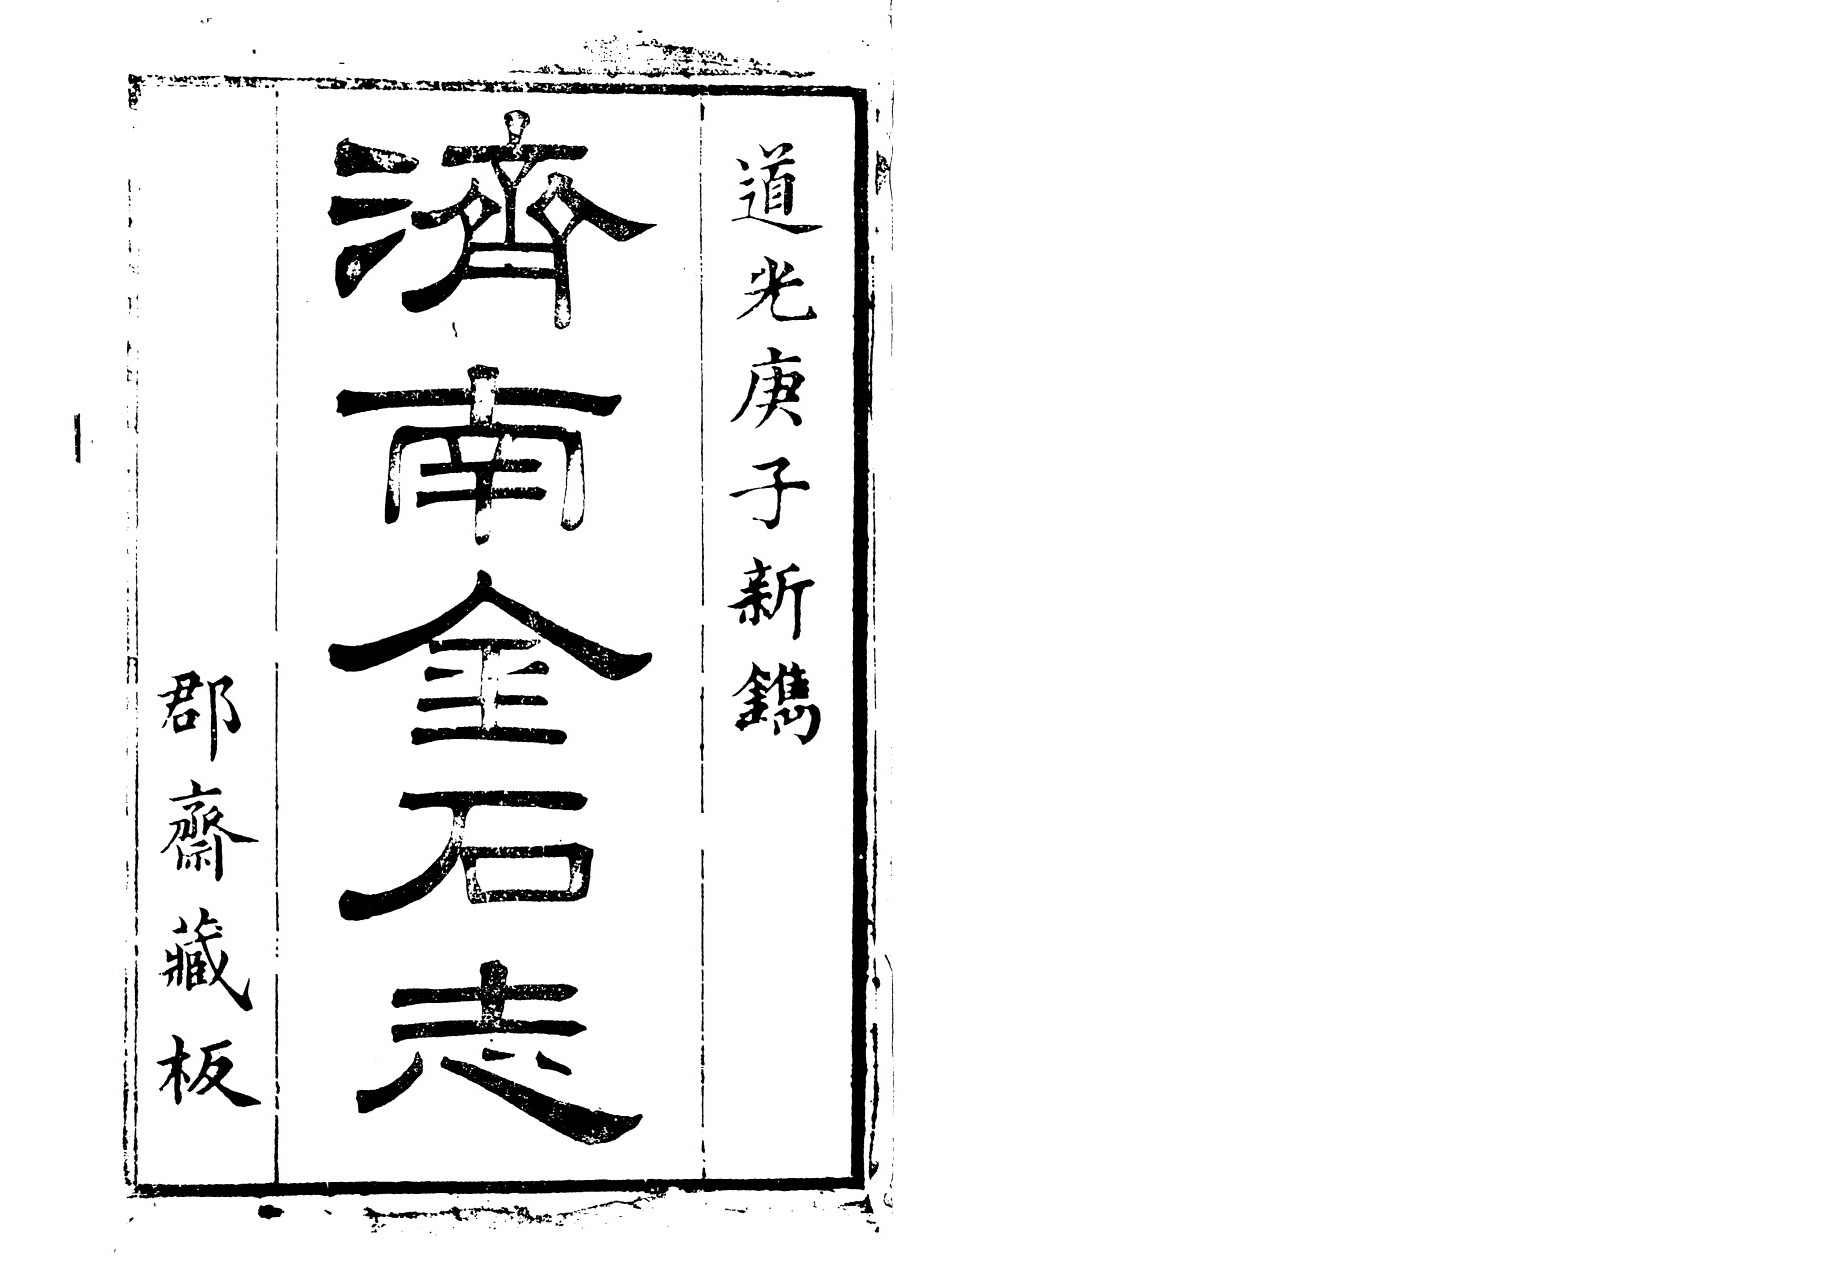 道光庚子新鐫
濟南金石志
郡齋藏板